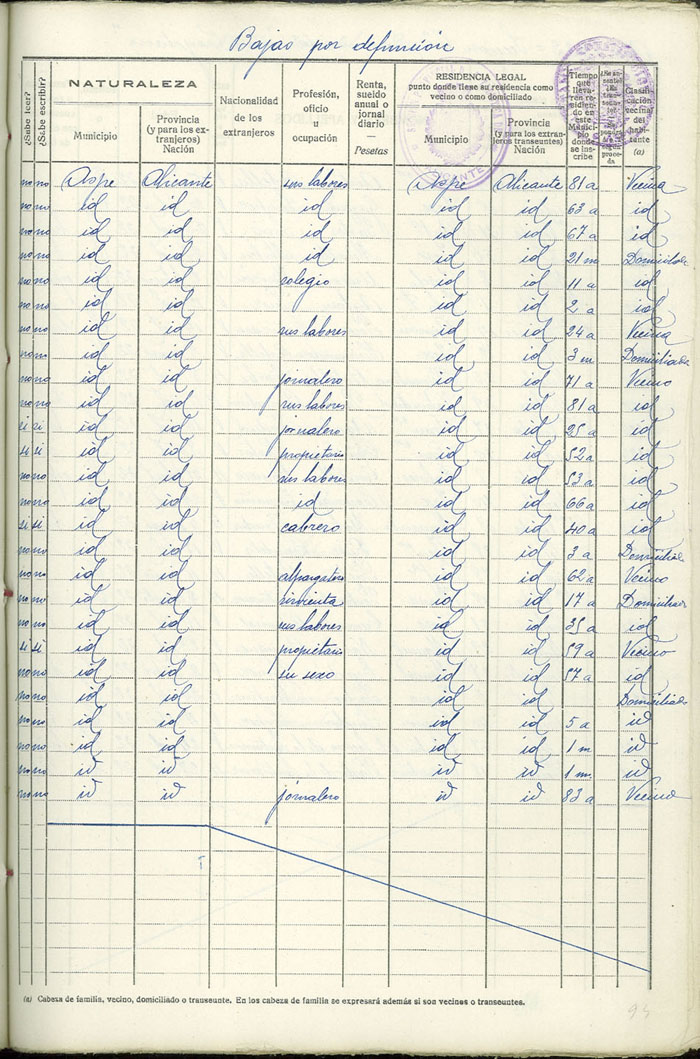 Bajas por defunción
¿Sabe leer?
¿Sabe escribir?
NATURALEZA
Municipio
Provincia (y para los extranjeros) Nación
Nacionalidad de los extranjeros
Profesión, oficio u ocupación
Renta, sueldo anual o jornal diario — Pesetas
RESIDENCIA LEGAL
punto donde tiene su residencia como vecino o como domiciliado
Municipio
Provincia (y para los extranjeros transeuntes) Nación
Tiempo que llevaren residiendo en este Municipio donde se inscribe
Clasificación vecinal del habitante (a)
no no Aspe Alicante sus labores Aspe Alicante 81 a Vecina
no no id id id id id 63 a id
no no id id id id id 67 a id
no no id id id id id 21 m Domiciliada
no no id id colegio id id 11 a id
no no id id id id 2 a id
no no id id sus labores id id 24 a Vecina
no no id id id id 3 m Domiciliada
no no id id jornalero id id 71 a Vecino
no no id id sus labores id id 81 a id
si si id id jornalero id id 25 a id
si si id id propietario id id 52 a id
no no id id sus labores id id 53 a id
no no id id id id id 66 a id
si si id id cabrero id id 40 a id
no no id id id id 3 a Domiciliad
no no id id alpargatero id id 62 a Vecino
no no id id sirvienta id id 17 a Domiciliada
no no id id sus labores id id 35 a id
si si id id propietario id id 59 a Vecino
no no id id su sexo id id 57 a id
no no id id id id Domiciliado
no no id id id id 5 a id
no no id id id id 1 m id
no no id id id id 1 m id
no no id id jornalero id id 83 a Vecino
(a) Cabeza de familia, vecino, domiciliado o transeunte. En los cabeza de familia se expresará además si son vecinos o transeuntes.